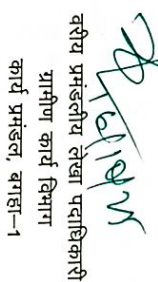 वरीय प्रमंडलीय लेखा पदाधिकारी
ग्रामीण कार्य विभाग
कार्य प्रमंडल, बगहा–1